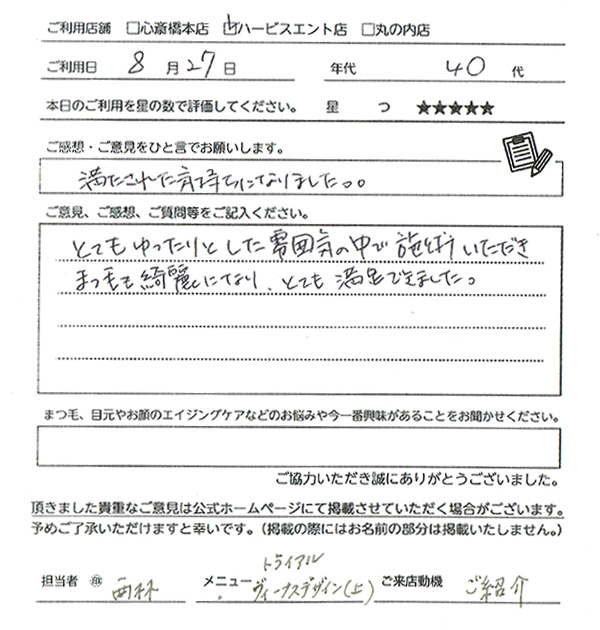 ご利用店舗 □心斎橋本店 ☑ハービスエント店 □丸の内店
ご利用日 8月27日 年代 40代
本日のご利用を星の数で評価してください。 星 つ ★★★★★
ご感想・ご意見をひと言でお願いします。
満たされた気持ちになりました。。
ご意見、ご感想、ご質問等をご記入ください。
とてもゆったりとした雰囲気の中で施術いただき
まつ毛も綺麗になり、とても満足できました。
まつ毛、目元やお顔のエイジングケアなどのお悩みや今一番興味があることをお聞かせください。
ご協力いただき誠にありがとうございました。
頂きました貴重なご意見は公式ホームページにて掲載させていただく場合がございます。
予めご了承いただけますと幸いです。（掲載の際にはお名前の部分は掲載いたしません。）
トライアル
担当者 ㊞ 西林 メニュー ヴィーナスデザイン(上) ご来店動機 ご紹介